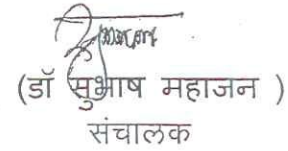 (डॉ सुभाष महाजन )
संचालक